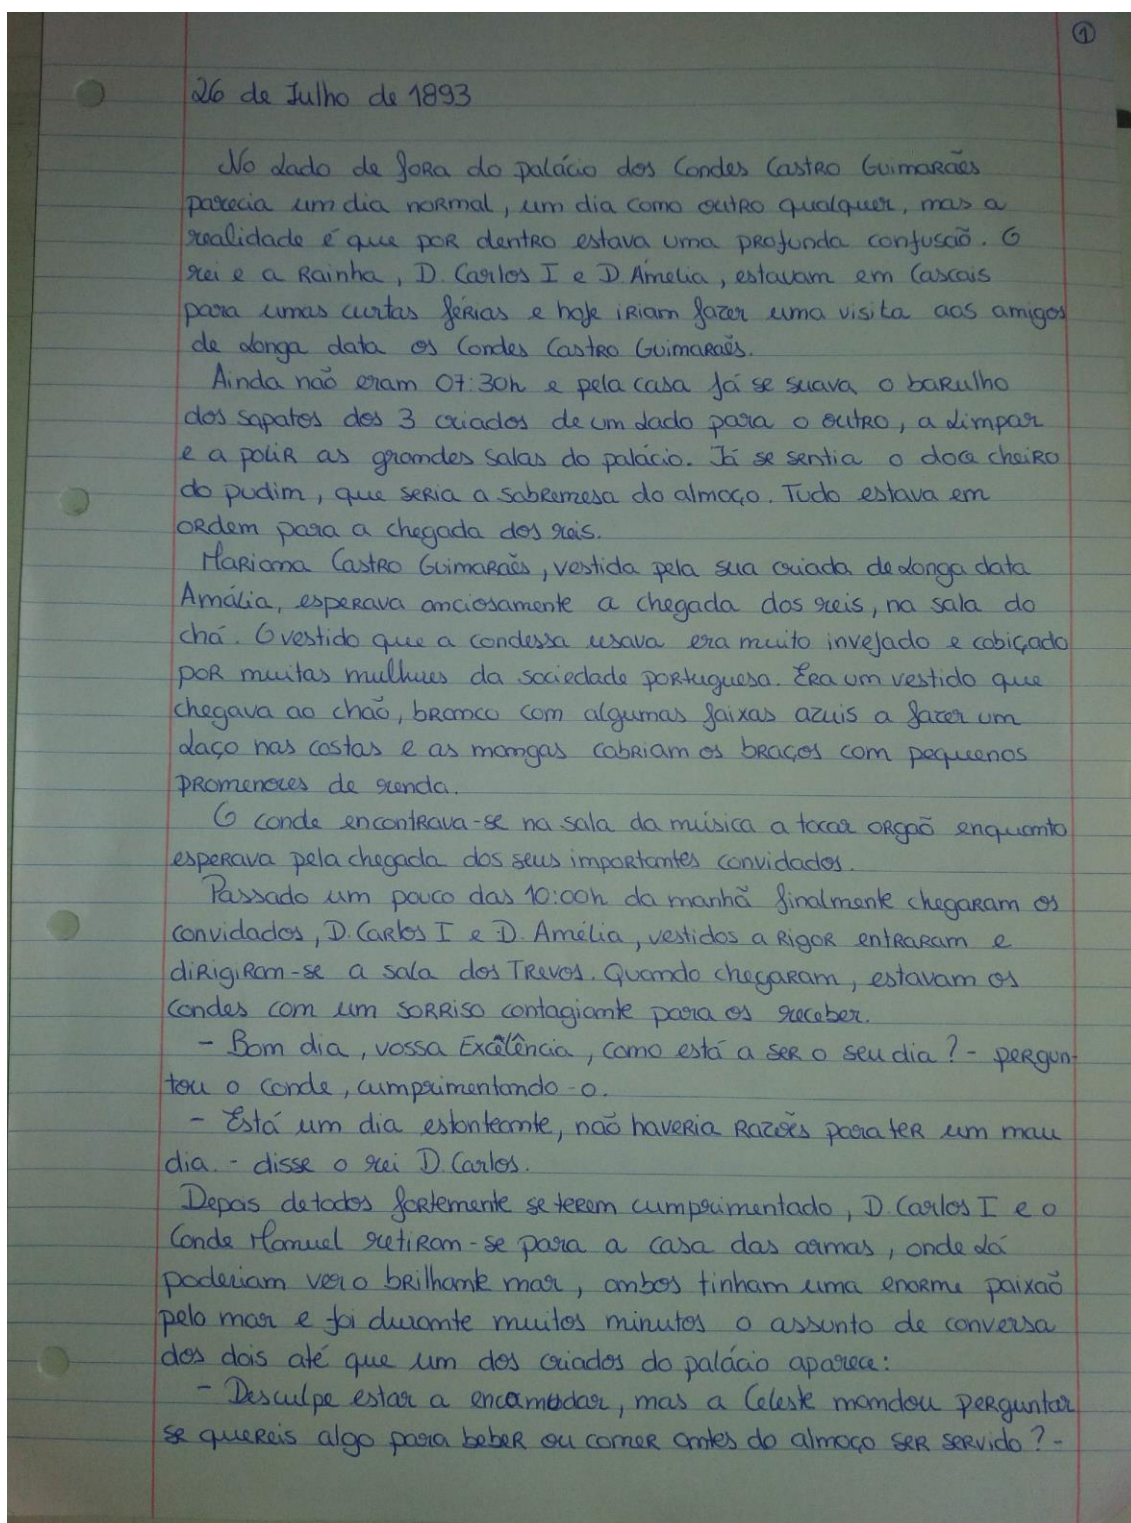 ①
26 de Julho de 1893
No lado de fora do palácio dos Condes Castro Guimarães
parecia um dia normal, um dia como outro qualquer, mas a
realidade é que por dentro estava uma profunda confusão. O
rei e a Rainha, D. Carlos I e D. Amelia, estavam em Cascais
para umas curtas férias e hoje iriam fazer uma visita aos amigos
de longa data os Condes Castro Guimarães.
Ainda não eram 07:30h e pela casa já se suava o barulho
dos sapatos dos 3 criados de um lado para o outro, a limpar
e a polir as grandes salas do palácio. Já se sentia o doce cheiro
do pudim, que seria a sobremesa do almoço. Tudo estava em
ordem para a chegada dos reis.
Mariana Castro Guimarães, vestida pela sua criada de longa data
Amália, esperava anciosamente a chegada dos reis, na sala do
chá. O vestido que a condessa usava era muito invejado e cobiçado
por muitas mulheres da sociedade portuguesa. Era um vestido que
chegava ao chão, branco com algumas faixas azuis a fazer um
laço nas costas e as mangas cobriam os braços com pequenos
promenores de renda.
O conde encontrava-se na sala da música a tocar orgão enquanto
esperava pela chegada dos seus importantes convidados.
Passado um pouco das 10:00h da manhã finalmente chegaram os
convidados, D. Carlos I e D. Amélia, vestidos a rigor entraram e
dirigiram-se a sala dos Trevos. Quando chegaram, estavam os
Condes com um sorriso contagiante para os receber.
- Bom dia, vossa Excelência, como está a ser o seu dia? - pergun-
tou o conde, cumprimentando-o.
- Está um dia estonteante, não haveria razões para ter um mau
dia. - disse o rei D. Carlos.
Depois de todos fortemente se terem cumprimentado, D. Carlos I e o
Conde Manuel retiram-se para a casa das armas, onde lá
poderiam ver o brilhante mar, ambos tinham uma enorme paixão
pelo mar e foi durante muitos minutos o assunto de conversa
dos dois até que um dos criados do palácio aparece:
- Desculpe estar a encomodar, mas a Celeste mandou perguntar
se quereis algo para beber ou comer antes do almoço ser servido? -